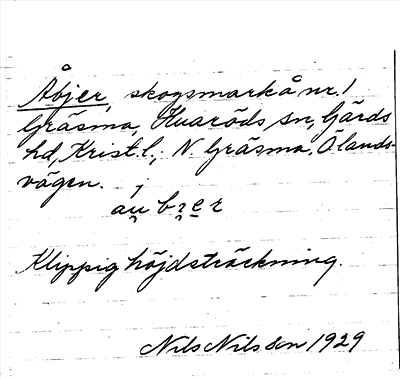 Åbjer, skogsmark å nr. 1
Gräsma, Huaröds sn, Gärds
hd, Krist. l.; N. Gräsma. Ölands-
vägen.
Klippig höjdsträckning.
Nils Nilsson 1929